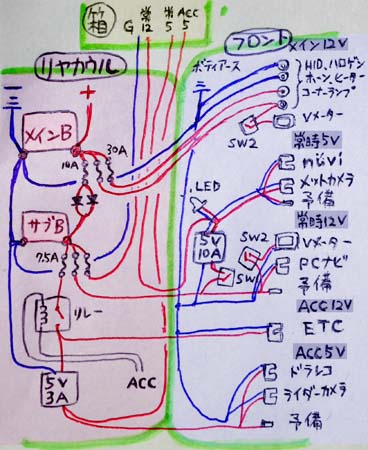 竹箱
G 常12 常5 ACC5
リヤカウル
フロント
メイン12V
ボディアース
HID、ハロゲン
ホーン、ヒーター
コーナーランプ
Vメーター
SW2
メインB
10A
30A
常時5V
nuvi
メットカメラ
予備
LED
常時12V
サブB
7.5A
5V
10A
SW2
Vメーター
SW
PCナビ
予備
リレー
ACC12V
ETC
ACC5V
5V
3A
ACC
ドラレコ
ライダーカメラ
予備